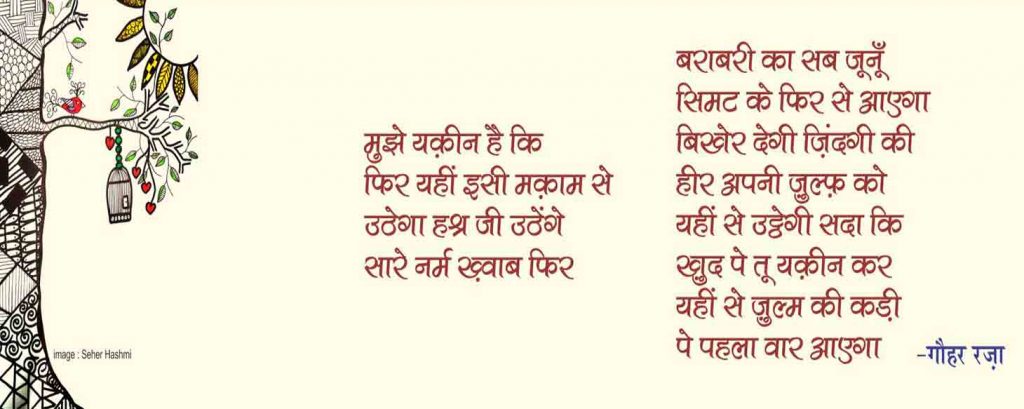 मुझे यक़ीन है कि
फिर यहीं इसी मक़ाम से
उठेगा हश्र जी उठेंगे
सारे नर्म ख़्वाब फिर
बराबरी का सब जूनूँ
सिमट के फिर से आएगा
बिखेर देगी ज़िंदगी की
हीर अपनी ज़ुल्फ़ को
यहीं से उट्ठेगी सदा कि
ख़ुद पे तू यक़ीन कर
यहीं से ज़ुल्म की कड़ी
पे पहला वार आएगा
-गौहर रज़ा
image : Seher Hashmi